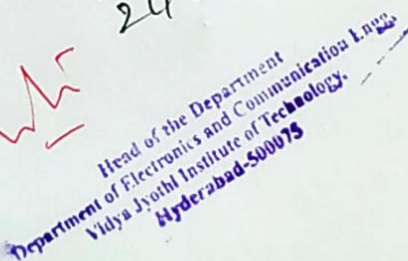 24
Head of the Department
Department of Electronics and Communication Engg.
Vidya Jyothi Institute of Technology,
Hyderabad-500075